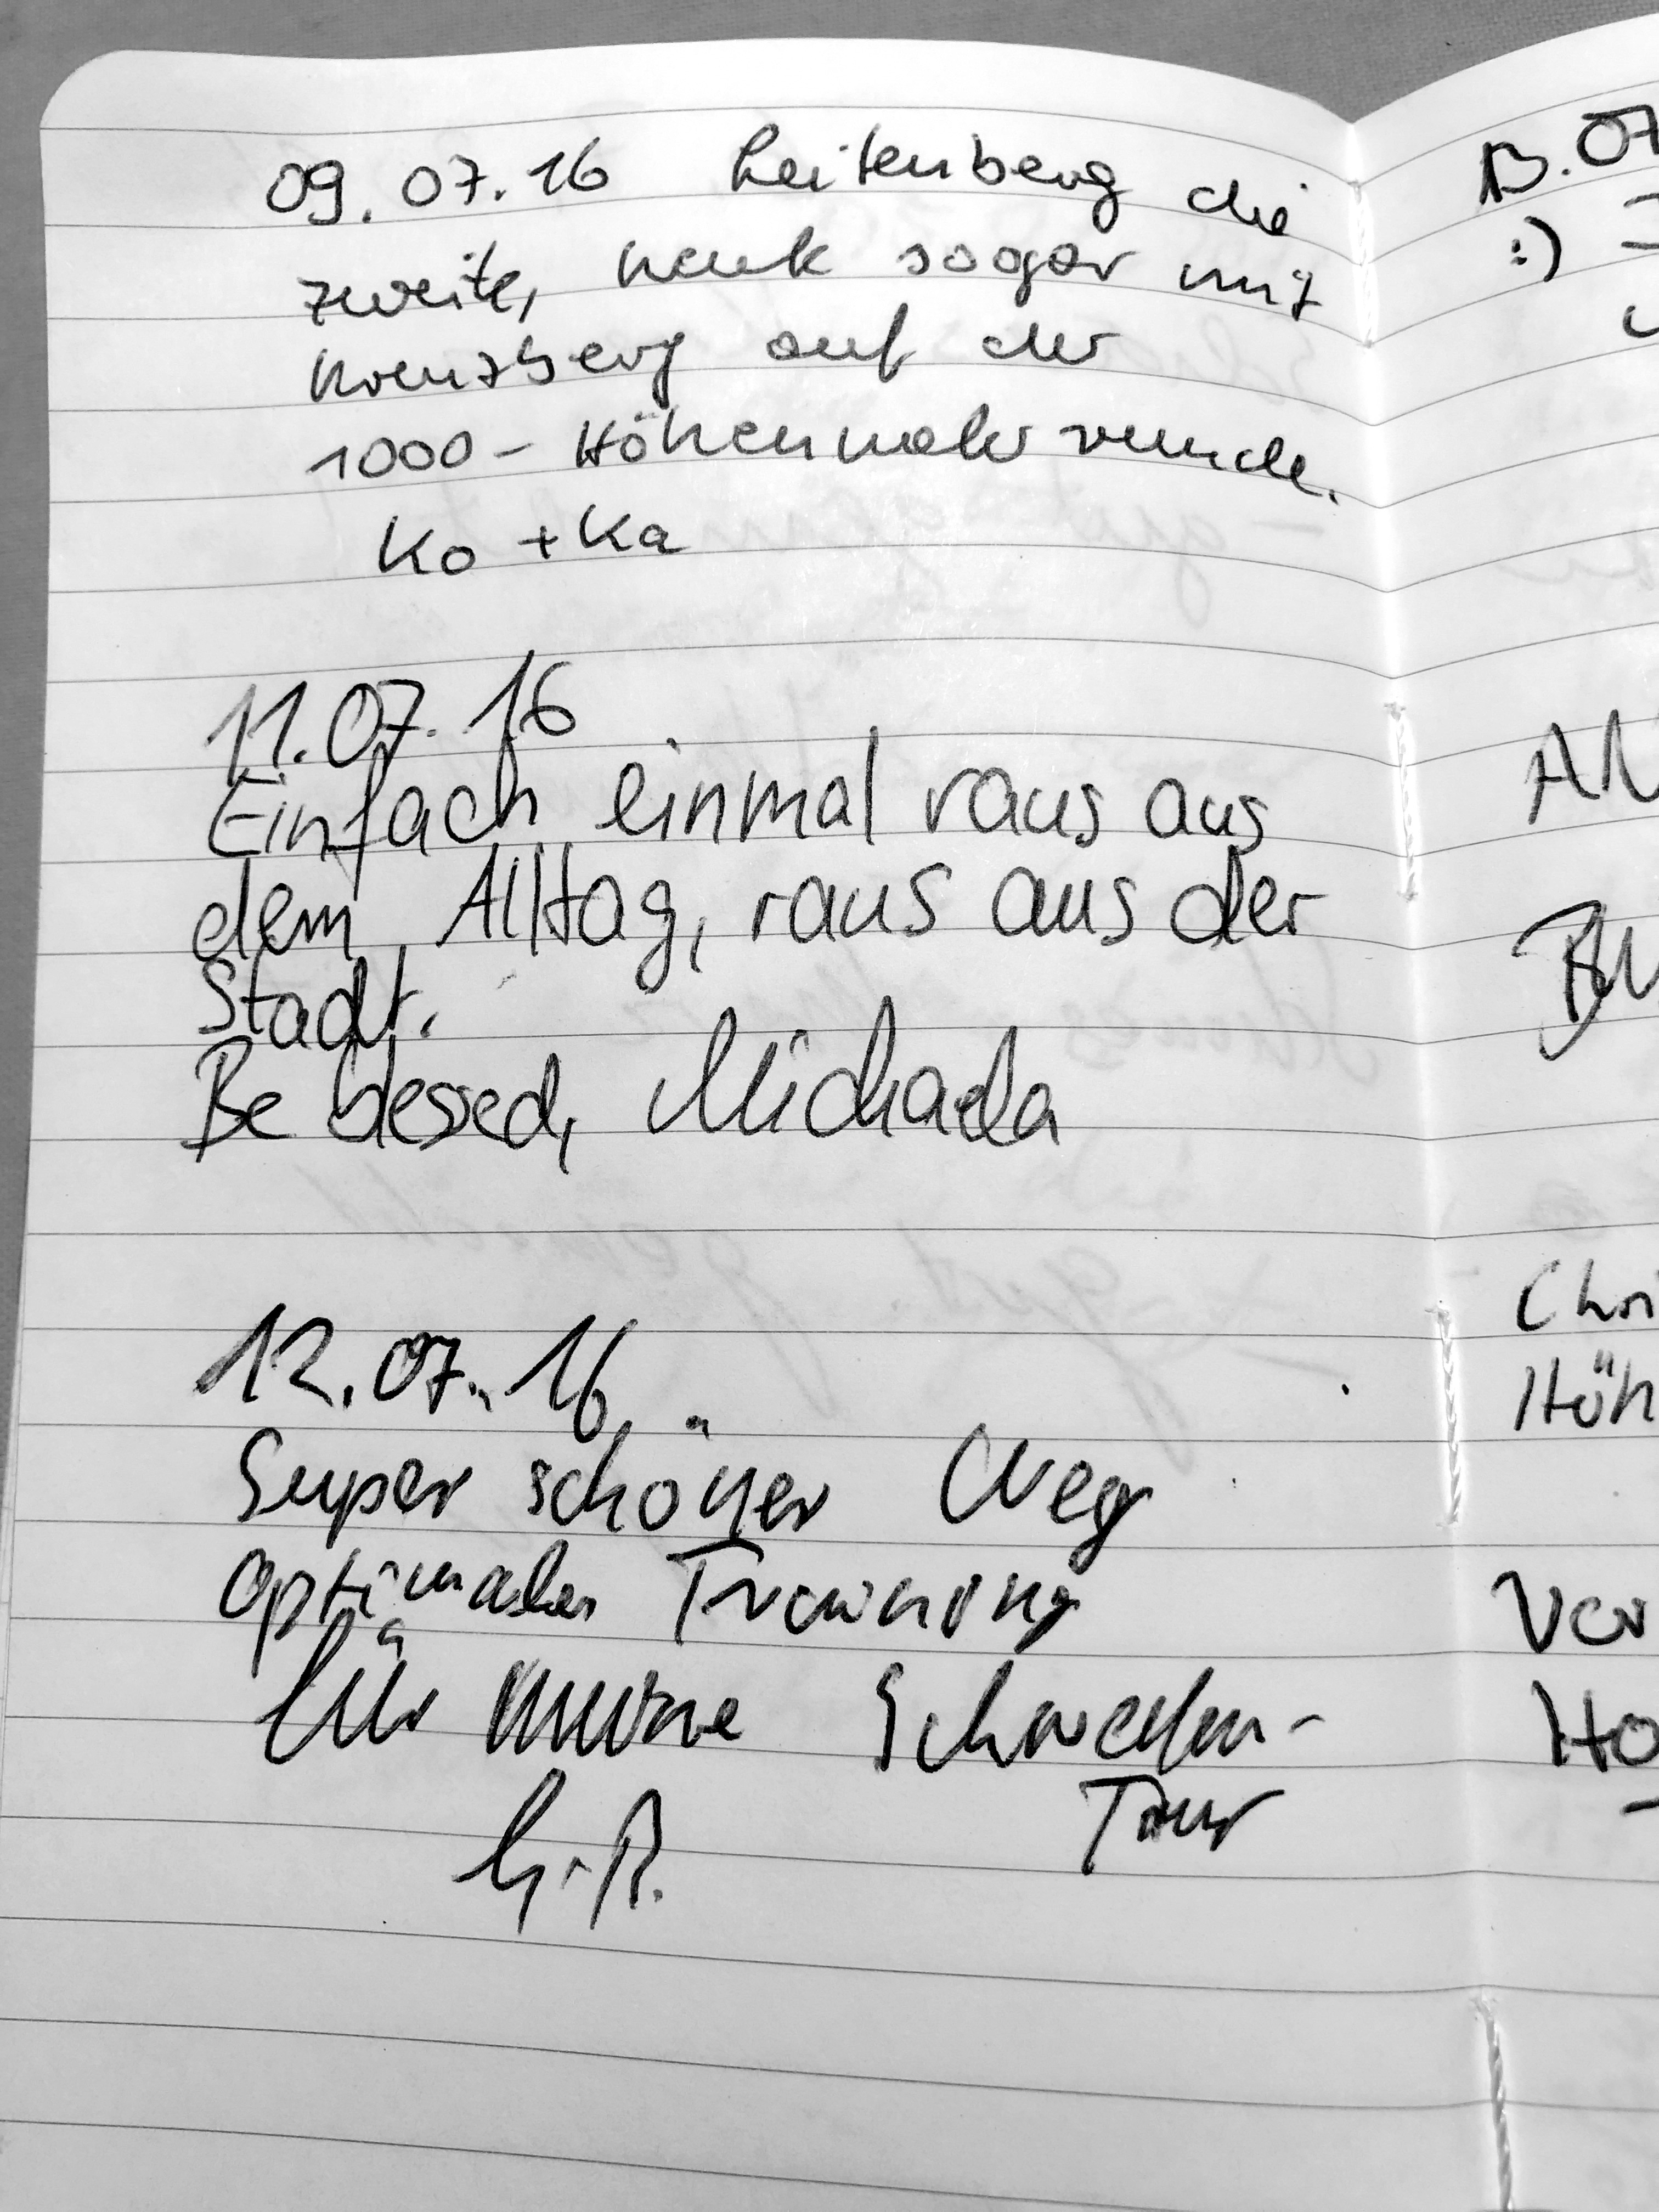 09.07.16 Leitenberg die
zweite, heute sogar mit
Kreuzberg auf der
1000-Höhenmeter runde.
Ko + Ka
11.07.16
Einfach einmal raus aus
dem Alltag, raus aus der
Stadt.
Be blessed, Michaela
12.07.16
Super schöner Weg
optimales Training
für meine Schweden-
Tour
G.R.
13.07
:)
Chri
Höh
Vor
Ho